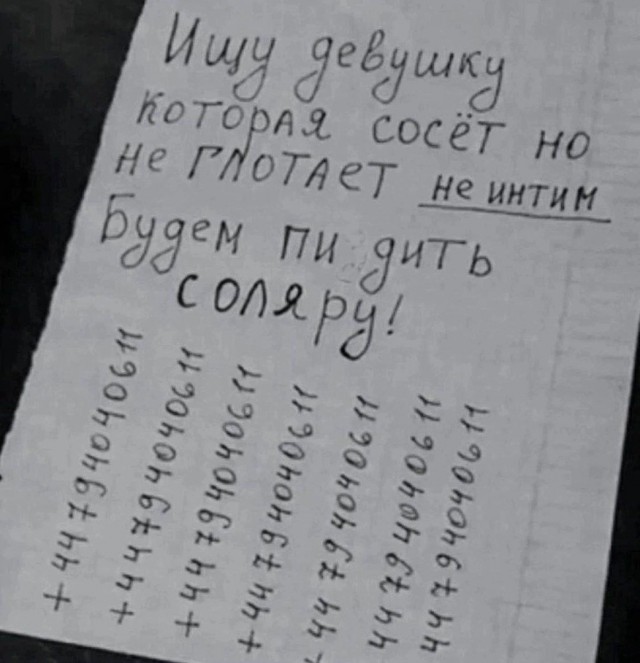 Ищу девушку
которая сосёт но
не глотает не интим
Будем пи дить
соляру!
+44794040611
+44794040611
+44794040611
+44794040611
+44794040611
44794040611
44794040611